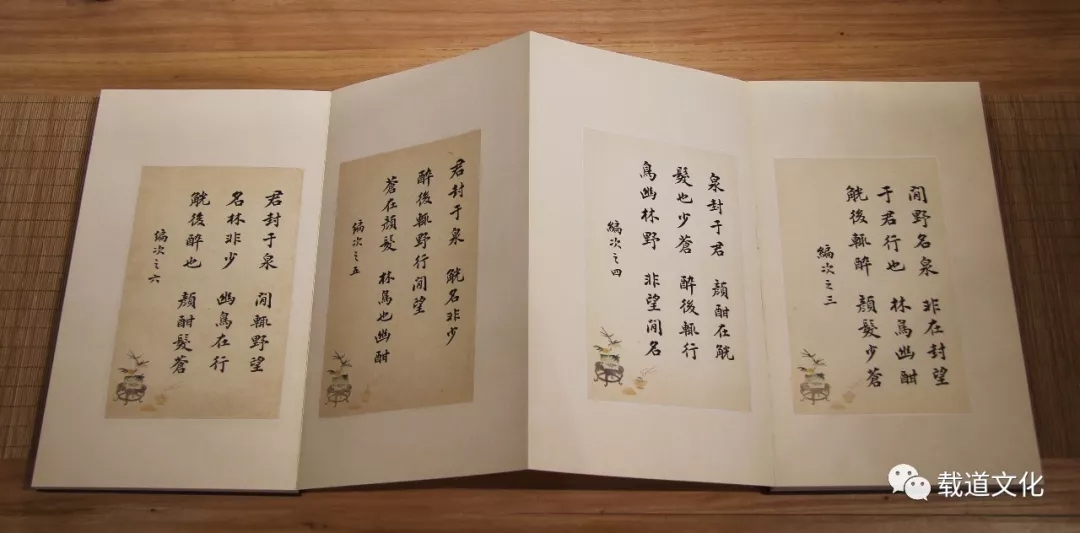 閒野名泉 非在封望
于君行也 林鳥幽酣
觥後輒醉 顏髮少蒼
編次之三
泉封于君 顏酣在觥
髮也少蒼 醉後輒行
鳥幽林野 非望閒名
編次之四
君封于泉 觥名非少
醉後輒野行閒望
蒼在顏髮 林鳥也幽酣
編次之五
君封于泉 閒輒野望
名林非少 幽鳥在行
觥後醉也 顏酣髮蒼
編次之六
载道文化